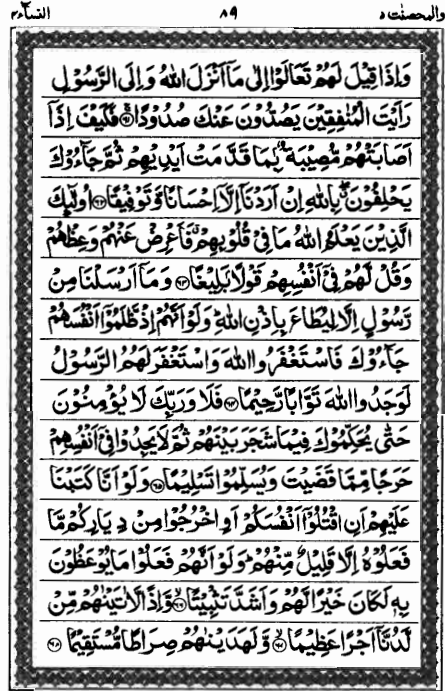 والمحصنت ۵ ۸۹ النساء ۴
وَاِذَا قِيْلَ لَهُمْ تَعَالَوْا اِلٰى مَاۤ اَنْزَلَ اللّٰهُ وَاِلَى الرَّسُوْلِ
رَاَيْتَ الْمُنٰفِقِيْنَ يَصُدُّوْنَ عَنْكَ صُدُوْدًا ﴿۶۱﴾ فَكَيْفَ اِذَاۤ
اَصَابَتْهُمْ مُّصِيْبَةٌۢ بِمَا قَدَّمَتْ اَيْدِيْهِمْ ثُمَّ جَآءُوْكَ
يَحْلِفُوْنَ ۖ بِاللّٰهِ اِنْ اَرَدْنَاۤ اِلَّاۤ اِحْسَانًا وَّتَوْفِيْقًا ﴿۶۲﴾ اُولٰٓئِكَ
الَّذِيْنَ يَعْلَمُ اللّٰهُ مَا فِيْ قُلُوْبِهِمْ ۗ فَاَعْرِضْ عَنْهُمْ وَعِظْهُمْ
وَقُلْ لَّهُمْ فِيْۤ اَنْفُسِهِمْ قَوْلًاۢ بَلِيْغًا ﴿۶۳﴾ وَمَاۤ اَرْسَلْنَا مِنْ
رَّسُوْلٍ اِلَّا لِيُطَاعَ بِاِذْنِ اللّٰهِ ۚ وَلَوْ اَنَّهُمْ اِذْ ظَّلَمُوْۤا اَنْفُسَهُمْ
جَآءُوْكَ فَاسْتَغْفَرُوا اللّٰهَ وَاسْتَغْفَرَ لَهُمُ الرَّسُوْلُ
لَوَجَدُوا اللّٰهَ تَوَّابًا رَّحِيْمًا ﴿۶۴﴾ فَلَا وَرَبِّكَ لَا يُؤْمِنُوْنَ
حَتّٰى يُحَكِّمُوْكَ فِيْمَا شَجَرَ بَيْنَهُمْ ثُمَّ لَا يَجِدُوْا فِيْۤ اَنْفُسِهِمْ
حَرَجًا مِّمَّا قَضَيْتَ وَيُسَلِّمُوْا تَسْلِيْمًا ﴿۶۵﴾ وَلَوْ اَنَّا كَتَبْنَا
عَلَيْهِمْ اَنِ اقْتُلُوْۤا اَنْفُسَكُمْ اَوِ اخْرُجُوْا مِنْ دِيَارِكُمْ مَّا
فَعَلُوْهُ اِلَّا قَلِيْلٌ مِّنْهُمْ ۗ وَلَوْ اَنَّهُمْ فَعَلُوْا مَا يُوْعَظُوْنَ
بِهٖ لَكَانَ خَيْرًا لَّهُمْ وَاَشَدَّ تَثْبِيْتًا ﴿۶۶﴾ وَّاِذًا لَّاٰتَيْنٰهُمْ مِّنْ
لَّدُنَّاۤ اَجْرًا عَظِيْمًا ﴿۶۷﴾ وَّلَهَدَيْنٰهُمْ صِرَاطًا مُّسْتَقِيْمًا ﴿۶۸﴾